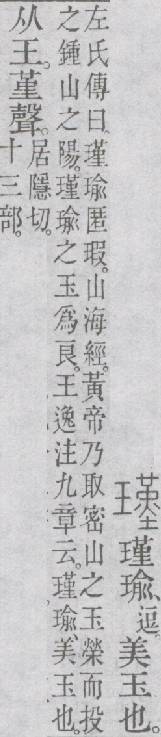 瑾 瑾瑜、逗。美玉也。
左氏傳曰。瑾瑜匿瑕。山海經。黃帝乃取密山之玉榮而投
之鍾山之陽。瑾瑜之玉爲良。王逸注九章云。瑾瑜、美玉也。
从王。堇聲。居隱切。
十三部。